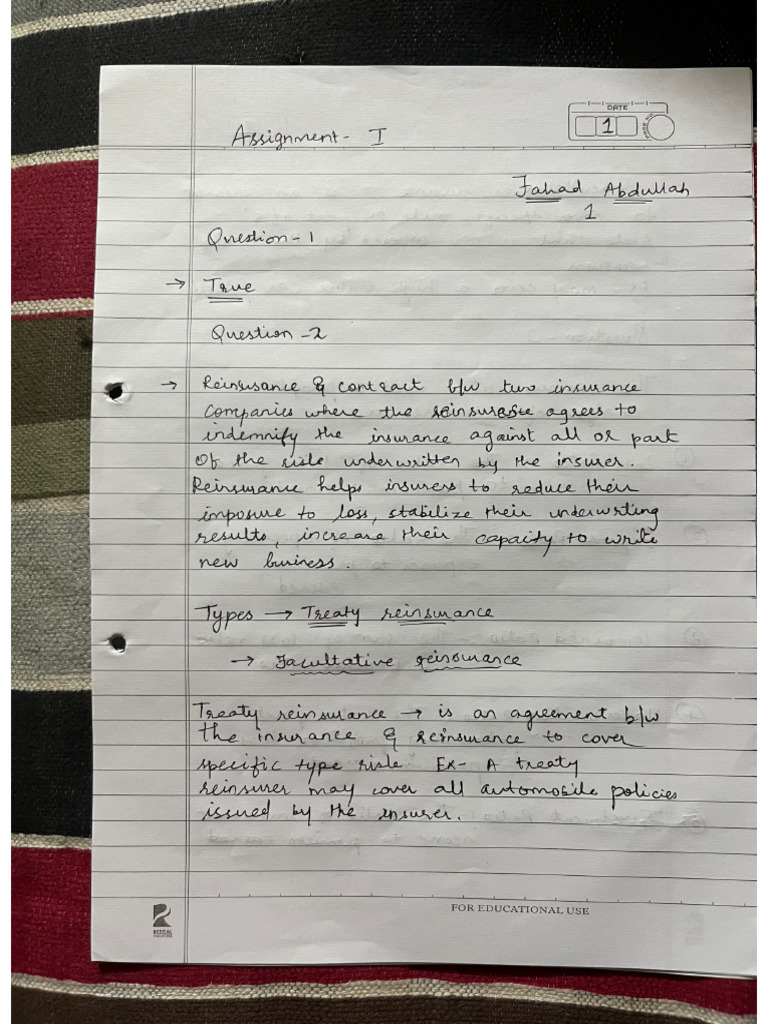 DATE
1
Assignment - I
Fahad Abdullah
1
Question - 1
→ True
Question - 2
→ Reinsurance & contract b/w two insurance
companies where the reinsurer agrees to
indemnify the insurance against all or part
of the risk underwritten by the insurer.
Reinsurance helps insurers to reduce their
imposure to loss, stabilize their underwriting
results, increase their capacity to write
new business.
Types → Treaty reinsurance
→ Facultative reinsurance
Treaty reinsurance → is an agreement b/w
the insurance & reinsurance to cover
specific type risk Ex- A treaty
reinsurer may cover all automobile policies
issued by the insurer.
FOR EDUCATIONAL USE